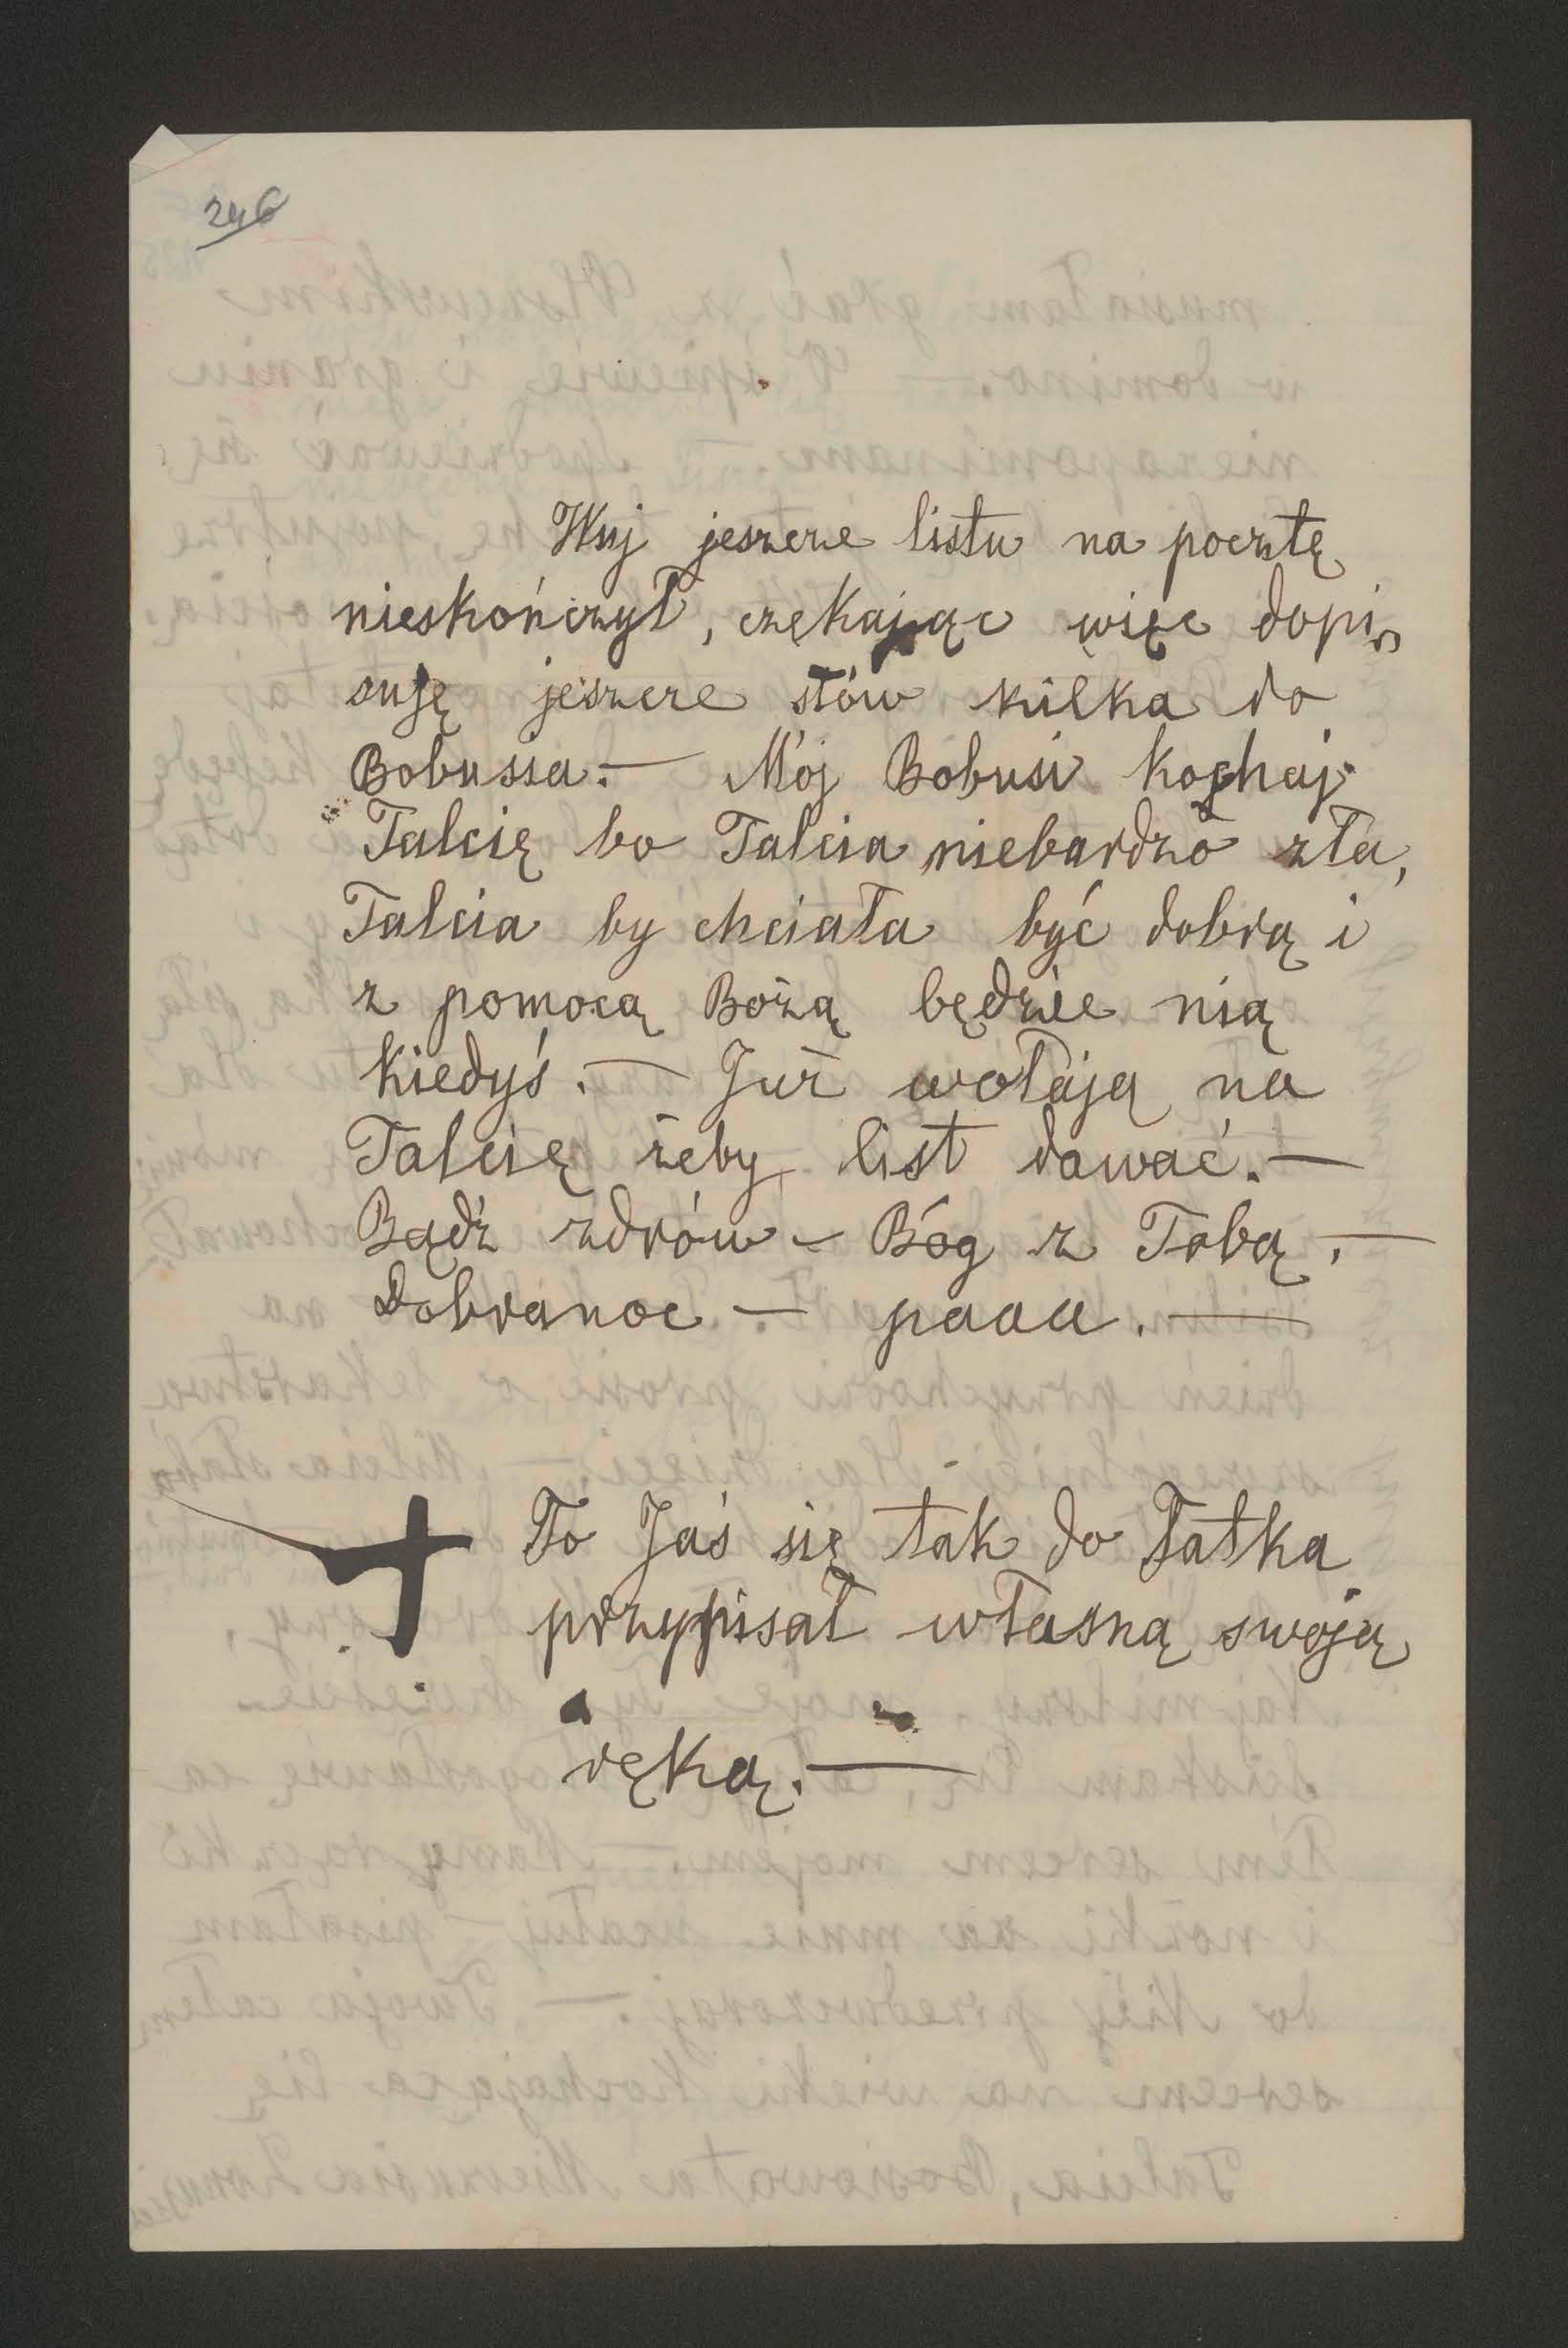 246
Wuj jeszcze listu na pocztę
nieskończył, czekając więc dopi„
suję jeszcze słów kilka do
Bobussa. — Mój Bobusi kochaj
Talcię bo Talcia niebardzo zła,
Talcia by chciała być dobrą i
z pomocą Bożą będzie nią
kiedyś. — Już wołają na
Talcię żeby list dawać. —
Bądź zdrów — Bóg z Tobą. —
Dobranoc — paaa. —
To Jaś się tak do Tatka
przypisał własną swoją
ręką. —